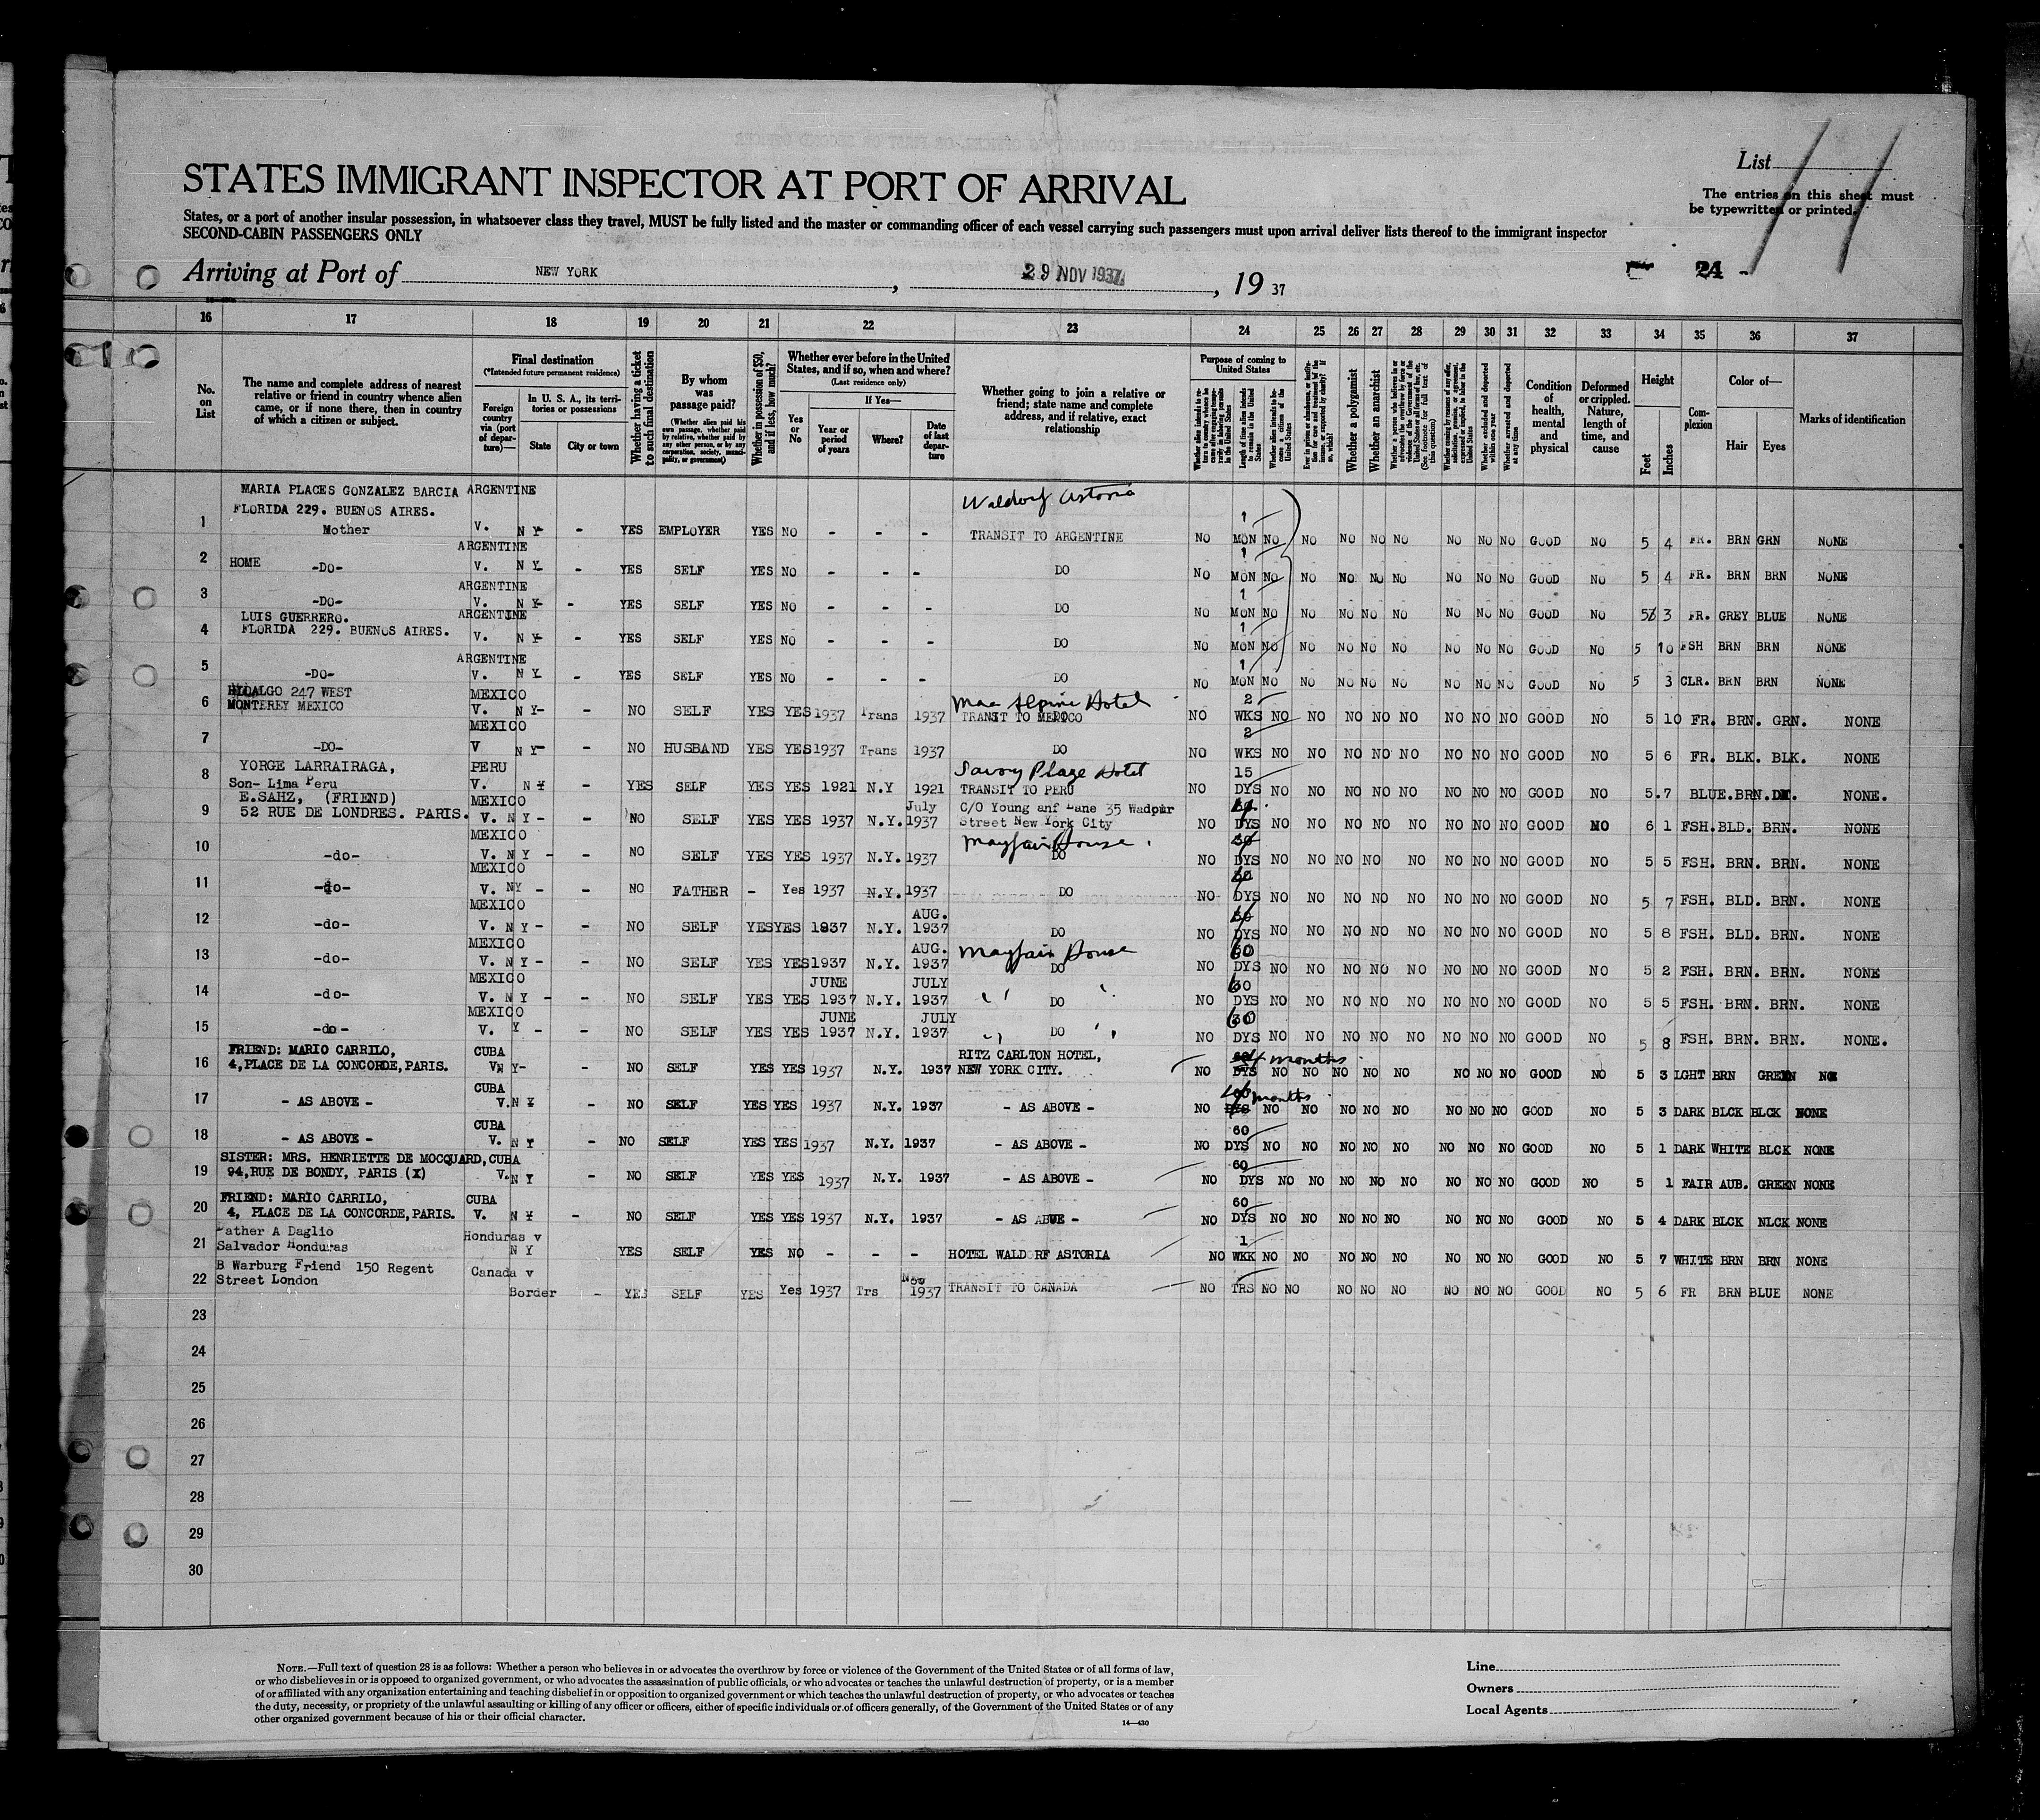 List
The entries on this sheet must
be typewritten or printed.
STATES IMMIGRANT INSPECTOR AT PORT OF ARRIVAL
States, or a port of another insular possession, in whatsoever class they travel, MUST be fully listed and the master or commanding officer of each vessel carrying such passengers must upon arrival deliver lists thereof to the immigrant inspector
SECOND-CABIN PASSENGERS ONLY
Arriving at Port of NEW YORK, 29 NOV 1937, 19 37
24
16 17 18 19 20 21 22 23 24 25 26 27 28 29 30 31 32 33 34 35 36 37
No. on List
The name and complete address of nearest relative or friend in country whence alien came, or if none there, then in country of which a citizen or subject.
Final destination
(*Intended future permanent residence)
Foreign country via (port of departure)—
In U. S. A., its territories or possessions
State City or town
Whether having a ticket to such final destination
By whom was passage paid?
(Whether alien paid his own passage, whether paid by relative, whether paid by any other person, or by any corporation, society, municipality, or government)
Whether in possession of $50, and if less, how much?
Whether ever before in the United States, and if so, when and where?
(Last residence only)
Yes or No
If Yes—
Year or period of years
Where?
Date of last departure
Whether going to join a relative or friend; state name and complete address, and if relative, exact relationship
Purpose of coming to United States
Length of time alien intends to remain in the United States
Whether alien intends to become a citizen of the United States
Whether a polygamist
Whether an anarchist
Whether excluded and deported within one year
Whether arrested and deported at any time
Condition of health, mental and physical
Deformed or crippled. Nature, length of time, and cause
Height
Feet Inches
Complexion
Color of—
Hair Eyes
Marks of identification
MARIA PLACES GONZALEZ BARCIA ARGENTINE Waldorf Astoria
FLORIDA 229. BUENOS AIRES.
1 Mother V. N Y - - YES EMPLOYER YES NO - - - TRANSIT TO ARGENTINE NO 1 MON NO NO NO NO NO NO NO NO GOOD NO 5 4 FR. BRN GRN NONE
ARGENTINE
2 HOME -DO- V. N Y - - YES SELF YES NO - - - DO NO 1 MON NO NO NO NO NO NO NO NO GOOD NO 5 4 FR. BRN BRN NONE
ARGENTINE
3 -DO- V. N Y - - YES SELF YES NO - - - DO NO 1 MON NO NO NO NO NO NO NO NO GOOD NO 5 3 FR. GREY BLUE NONE
LUIS GUERRERO. ARGENTINE
4 FLORIDA 229. BUENOS AIRES. V. N Y - - YES SELF YES NO - - - DO NO 1 MON NO NO NO NO NO NO NO NO GOOD NO 5 10 FSH BRN BRN NONE
ARGENTINE
5 -DO- V. N Y - - YES SELF YES NO - - - DO NO 1 MON NO NO NO NO NO NO NO NO GOOD NO 5 3 CLR. BRN BRN NONE
HIDALGO 247 WEST MEXICO Mac Alpine Hotel
6 MONTEREY MEXICO V. N Y - - NO SELF YES YES 1937 Trans 1937 TRANSIT TO MEXICO NO 2 WKS NO NO NO NO NO NO NO NO GOOD NO 5 10 FR. BRN. GRN. NONE
MEXICO
7 -DO- V N Y - - NO HUSBAND YES YES 1937 Trans 1937 DO NO 2 WKS NO NO NO NO NO NO NO NO GOOD NO 5 6 FR. BLK. BLK. NONE
YORGE LARRAIRAGA, PERU Savoy Plage Hotel
8 Son- Lima Peru V. N Y - YES SELF YES YES 1921 N.Y 1921 TRANSIT TO PERU NO 15 DYS NO NO NO NO NO NO NO NO GOOD NO 5.7 BLUE.BRN. NONE.
E.SAHZ, (FRIEND) MEXICO July C/O Young anf Lane 35 Wadpur
9 52 RUE DE LONDRES. PARIS. V. N Y - - NO SELF YES YES 1937 N.Y. 1937 Street New York City NO DYS NO NO NO NO NO NO NO NO GOOD NO 6 1 FSH. BLD. BRN. NONE
MEXICO Mayfair House
10 -do- V. N Y - - NO SELF YES YES 1937 N.Y. 1937 DO NO DYS NO NO NO NO NO NO NO NO GOOD NO 5 5 FSH. BRN. BRN. NONE
MEXICO
11 -do- V. NY - - NO FATHER - Yes 1937 N.Y. 1937 DO NO DYS NO NO NO NO NO NO NO NO GOOD NO 5 7 FSH. BLD. BRN. NONE
MEXICO AUG.
12 -do- V. N Y - - NO SELF YES YES 1937 N.Y. 1937 DO NO DYS NO NO NO NO NO NO NO NO GOOD NO 5 8 FSH. BLD. BRN. NONE
MEXICO AUG. Mayfair House
13 -do- V. N Y - - NO SELF YES YES 1937 N.Y. 1937 DO NO 60 DYS NO NO NO NO NO NO NO NO GOOD NO 5 2 FSH. BRN. BRN. NONE
MEXICO JUNE JULY
14 -do- V. N Y - - NO SELF YES YES 1937 N.Y. 1937 DO NO DYS NO NO NO NO NO NO NO NO GOOD NO 5 5 FSH. BRN. BRN. NONE
MEXICO JUNE JULY
15 -do- V. Y - - NO SELF YES YES 1937 N.Y. 1937 DO NO 60 DYS NO NO NO NO NO NO NO NO GOOD NO 5 8 FSH. BRN. BRN. NONE.
FRIEND: MARIO CARRILO, CUBA RITZ CARLTON HOTEL,
16 4,PLACE DE LA CONCORDE,PARIS. V. N Y- - NO SELF YES YES 1937 N.Y. 1937 NEW YORK CITY. NO 4 months DYS NO NO NO NO NO NO NO NO GOOD NO 5 3 LGHT BRN GREEN
CUBA
17 - AS ABOVE - V. N Y - NO SELF YES YES 1937 N.Y. 1937 - AS ABOVE - NO months DYS NO NO NO NO NO NO NO NO GOOD NO 5 3 DARK BLCK BLCK NONE
CUBA
18 - AS ABOVE - V. N Y - NO SELF YES YES 1937 N.Y. 1937 - AS ABOVE - NO 60 DYS NO NO NO NO NO NO NO NO GOOD NO 5 1 DARK WHITE BLCK NONE
SISTER: MRS. HENRIETTE DE MOCQUARD, CUBA
19 94,RUE DE BONDY, PARIS (X) V. N Y - NO SELF YES YES 1937 N.Y. 1937 - AS ABOVE - NO 60 DYS NO NO NO NO NO NO NO NO GOOD NO 5 1 FAIR AUB. GREEN NONE
FRIEND: MARIO CARRILO, CUBA
20 4, PLACE DE LA CONCORDE,PARIS. V. N Y - NO SELF YES YES 1937 N.Y. 1937 - AS ABVE - NO 60 DYS NO NO NO NO NO NO NO NO GOOD NO 5 4 DARK BLCK NLCK NONE
Father A Daglio Honduras v
21 Salvador Honduras N Y YES SELF YES NO - - - HOTEL WALDORF ASTORIA NO 1 WKK NO NO NO NO NO NO NO NO GOOD NO 5 7 WHITE BRN BRN NONE
B Warburg Friend 150 Regent Canada v Nov
22 Street London Border - YES SELF YES Yes 1937 Trs 1937 TRANSIT TO CANADA NO TRS NO NO NO NO NO NO NO NO GOOD NO 5 6 FR BRN BLUE NONE
23
24
25
26
27
28
29
30
NOTE.—Full text of question 28 is as follows: Whether a person who believes in or advocates the overthrow by force or violence of the Government of the United States or of all forms of law,
or who disbelieves in or is opposed to organized government, or who advocates the assassination of public officials, or who advocates or teaches the unlawful destruction of property, or is a member
of or affiliated with any organization entertaining and teaching disbelief in or opposition to organized government or which teaches the unlawful destruction of property, or who advocates or teaches
the duty, necessity, or propriety of the unlawful assaulting or killing of any officer or officers, either of specific individuals or of officers generally, of the Government of the United States or of any
other organized government because of his or their official character.
14—430
Line
Owners
Local Agents